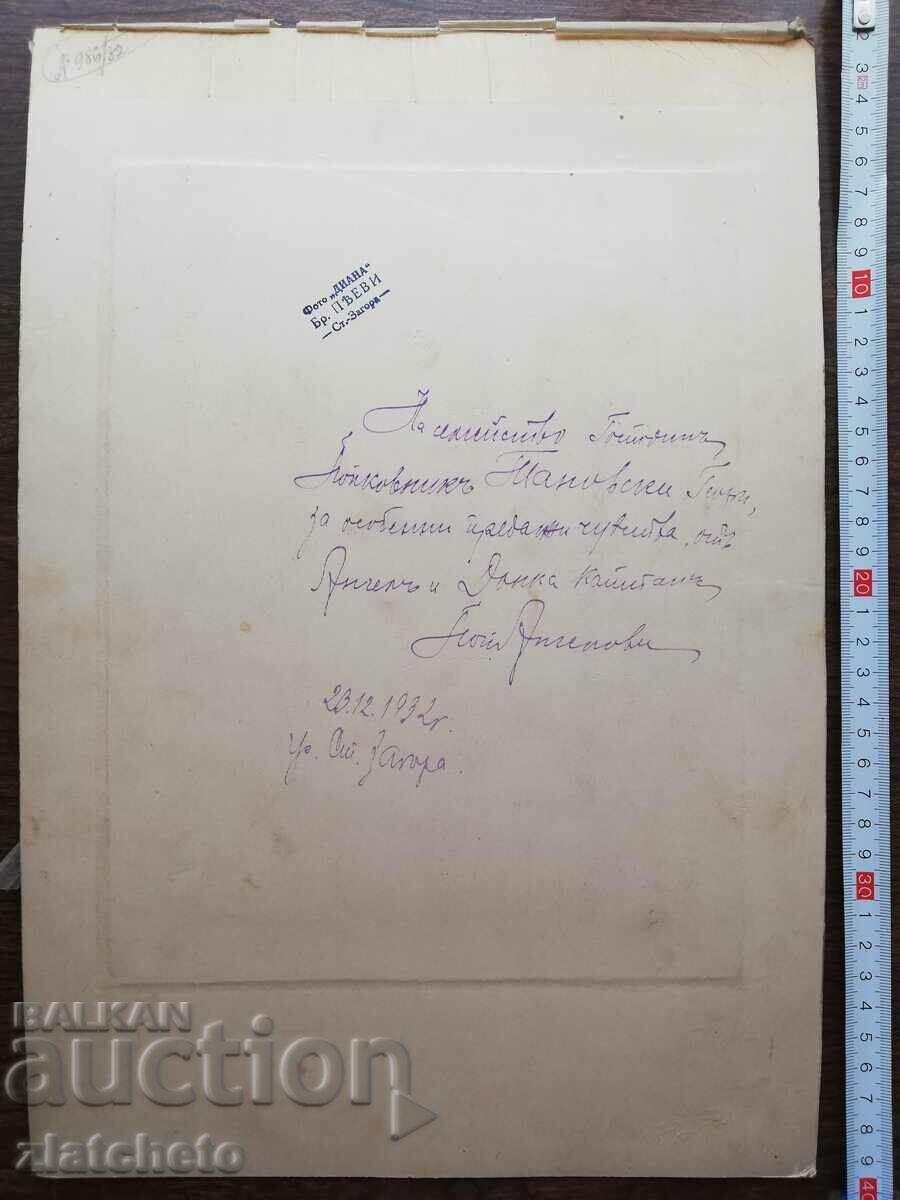 № 986/32
Фото „ДИАНА“
Бр. ПѢЕВИ
— Ст.-Загора —
На семейство Господинъ
Полковникъ Тановски Георги,
за особенни предани чувства отъ
Ангелъ и Донка Капитанъ
Ангелови
23.12.1932 г.
гр. Ст. Загора.
BALKAN
auction
zlatcheto
2 3 4 5 6 7 8 9 10 1 2 3 4 5 6 7 8 9 20 1 2 3 4 5 6 7 8 9 30 1 2 3 4 5 6 7 8 9 40